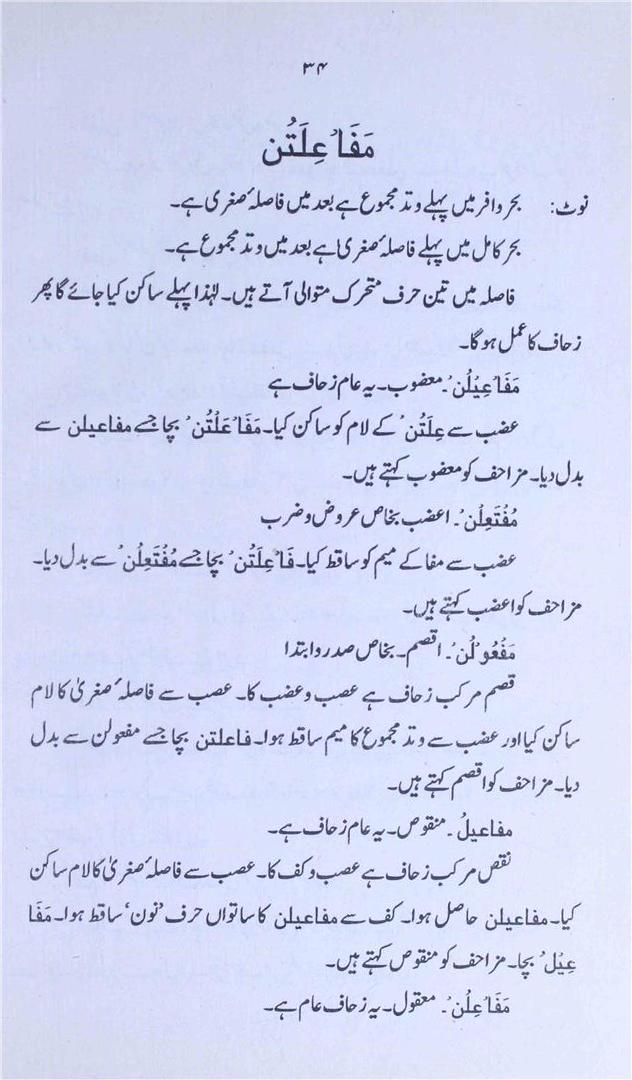 ۳۴
مَفَاعِلَتُن
نوٹ: بحر وافر میں پہلے وتد مجموع ہے بعد میں فاصلہ صغریٰ ہے۔
بحر کامل میں پہلے فاصلۂ صغریٰ ہے بعد میں وتد مجموع ہے۔
فاصلہ میں تین حرف متحرک متوالی آتے ہیں۔ لہٰذا پہلے ساکن کیا جائے گا پھر
زحاف کا عمل ہوگا۔
مَفَاعِیْلُن۔ معضوب۔ یہ عام زحاف ہے
عضب سے عِلَتُن کے لام کو ساکن کیا۔ مَفَاعَلْتُن بچا جسے مفاعیلن سے
بدل دیا۔ مزاحف کو معضوب کہتے ہیں۔
مُفْتَعِلُن۔ اعضب بخاص عروض و ضرب
عضب سے مفا کے میم کو ساقط کیا۔ فَاعِلَتُن بچا جسے مُفْتَعِلُن سے بدل دیا۔
مزاحف کو اعضب کہتے ہیں۔
مَفْعُوْلُن۔ اقصم۔ بخاص صدر و ابتدا
قصم مرکب زحاف ہے عصب و عضب کا۔ عصب سے فاصلۂ صغریٰ کا لام
ساکن کیا اور عضب سے وتد مجموع کا میم ساقط ہوا۔ فاعلتن بچا جسے مفعولن سے بدل
دیا۔ مزاحف کو اقصم کہتے ہیں۔
مفاعیلُ۔ منقوص۔ یہ عام زحاف ہے۔
نقص مرکب زحاف ہے عصب و کف کا۔ عصب سے فاصلۂ صغریٰ کا لام ساکن
کیا۔ مفاعیلن حاصل ہوا۔ کف سے مفاعیلن کا ساتواں حرف ’نون‘ ساقط ہوا۔ مَفَا
عِیْلُ بچا۔ مزاحف کو منقوص کہتے ہیں۔
مَفَاعِلُن۔ معقول۔ یہ زحاف عام ہے۔